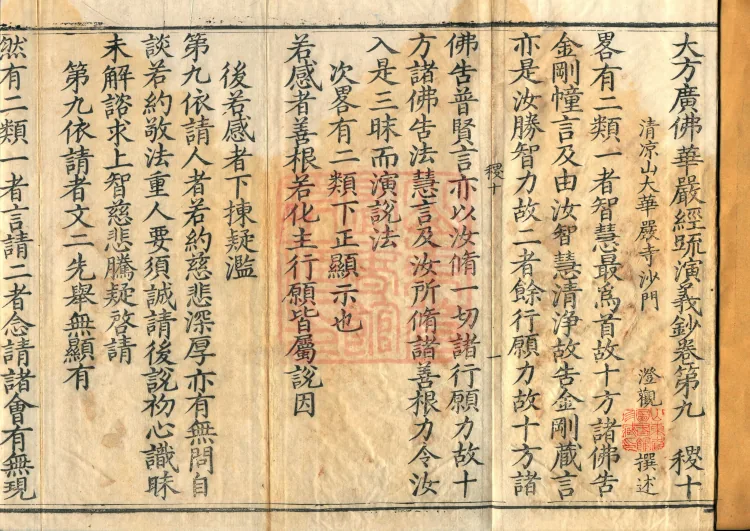 大方廣佛華嚴經䟽演義鈔卷第九 稷十
清涼山大華嚴寺沙門 澄觀 撰述
畧有二類一者智慧最為首故十方諸佛告
金剛幢言及由汝智慧清淨故告金剛藏言
亦是汝勝智力故二者餘行願力故十方諸
稷十 一
佛告普賢言亦以汝脩一切諸行願力故十
方諸佛告法慧言及汝所脩諸善根力令汝
入是三昧而演說法
次畧有二類下正顯示也
若感者善根若化主行願皆屬說因
後若感者下揀疑濫
第九依請人者若約慈悲深厚亦有無問自
談若約敬法重人要須誠請後說初心識昧
未解諮求上智慈悲騰疑啓請
第九依請者文二先舉無顯有
然有二類一者言請二者念請諸會有無現